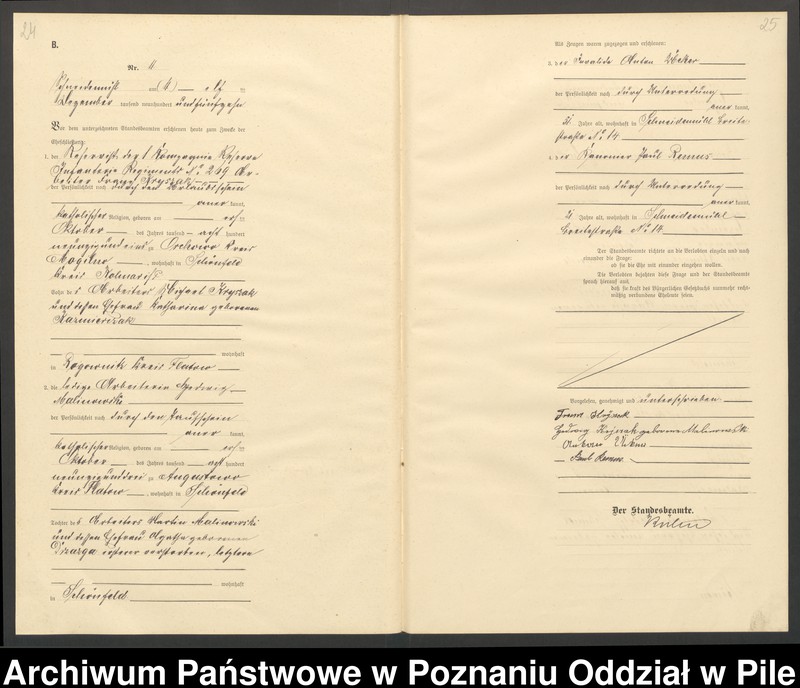 24
B.
Nr. 4
Schneidemühl am (4) elf ten
Dezember tausend neunhundert und fünfzehn
Vor dem unterzeichneten Standesbeamten erschienen heute zum Zweck der
Eheschließung:
1. der Reservist der 1 Kompagnie Reserve
Infanterie Regiments No 269 Ar-
beiter Franz
der Persönlichkeit nach durch den Urlaubsschein
aner kannt,
katholischer Religion, geboren am ten
Oktober des Jahres tausend acht hundert
neunzig und eins zu Orchowo Kreis
Mogilno, wohnhaft in Schönfeld
Kreis
Sohn des Arbeiters
und dessen Ehefrau Katharina geborenen
wohnhaft
in Kreis Flatow
2. die ledige Arbeiterin Hedwig
Malinowski
der Persönlichkeit nach durch den Taufschein
aner kannt,
katholischer Religion, geboren am ten
Oktober des Jahres tausend acht hundert
neunzig und drei zu Augustowo
Kreis Flatow, wohnhaft in Schönfeld
Tochter des Arbeiters Martin Malinowski
und dessen Ehefrau Agatha geborenen
ersterer verstorben, letztere
wohnhaft
in Schönfeld
25
Als Zeugen waren zugezogen und erschienen:
3. der Invalide Anton
der Persönlichkeit nach durch Unterredung
aner kannt,
Jahre alt, wohnhaft in Schneidemühl Breite-
straße No 14
4. der Kanonier Paul Remus
der Persönlichkeit nach durch Unterredung
aner kannt,
Jahre alt, wohnhaft in Schneidemühl
Breitestraße No 14.
Der Standesbeamte richtete an die Verlobten einzeln und nach
einander die Frage:
ob sie die Ehe mit einander eingehen wollen.
Die Verlobten bejahten diese Frage und der Standesbeamte
sprach hierauf aus,
daß sie kraft des Bürgerlichen Gesetzbuchs nunmehr recht-
mäßig verbundene Eheleute seien.
Vorgelesen, genehmigt und unterschrieben
Franz
Hedwig geborene Malinowski
Anton
Paul Remus
Der Standesbeamte.
Archiwum Państwowe w Poznaniu Oddział w Pile